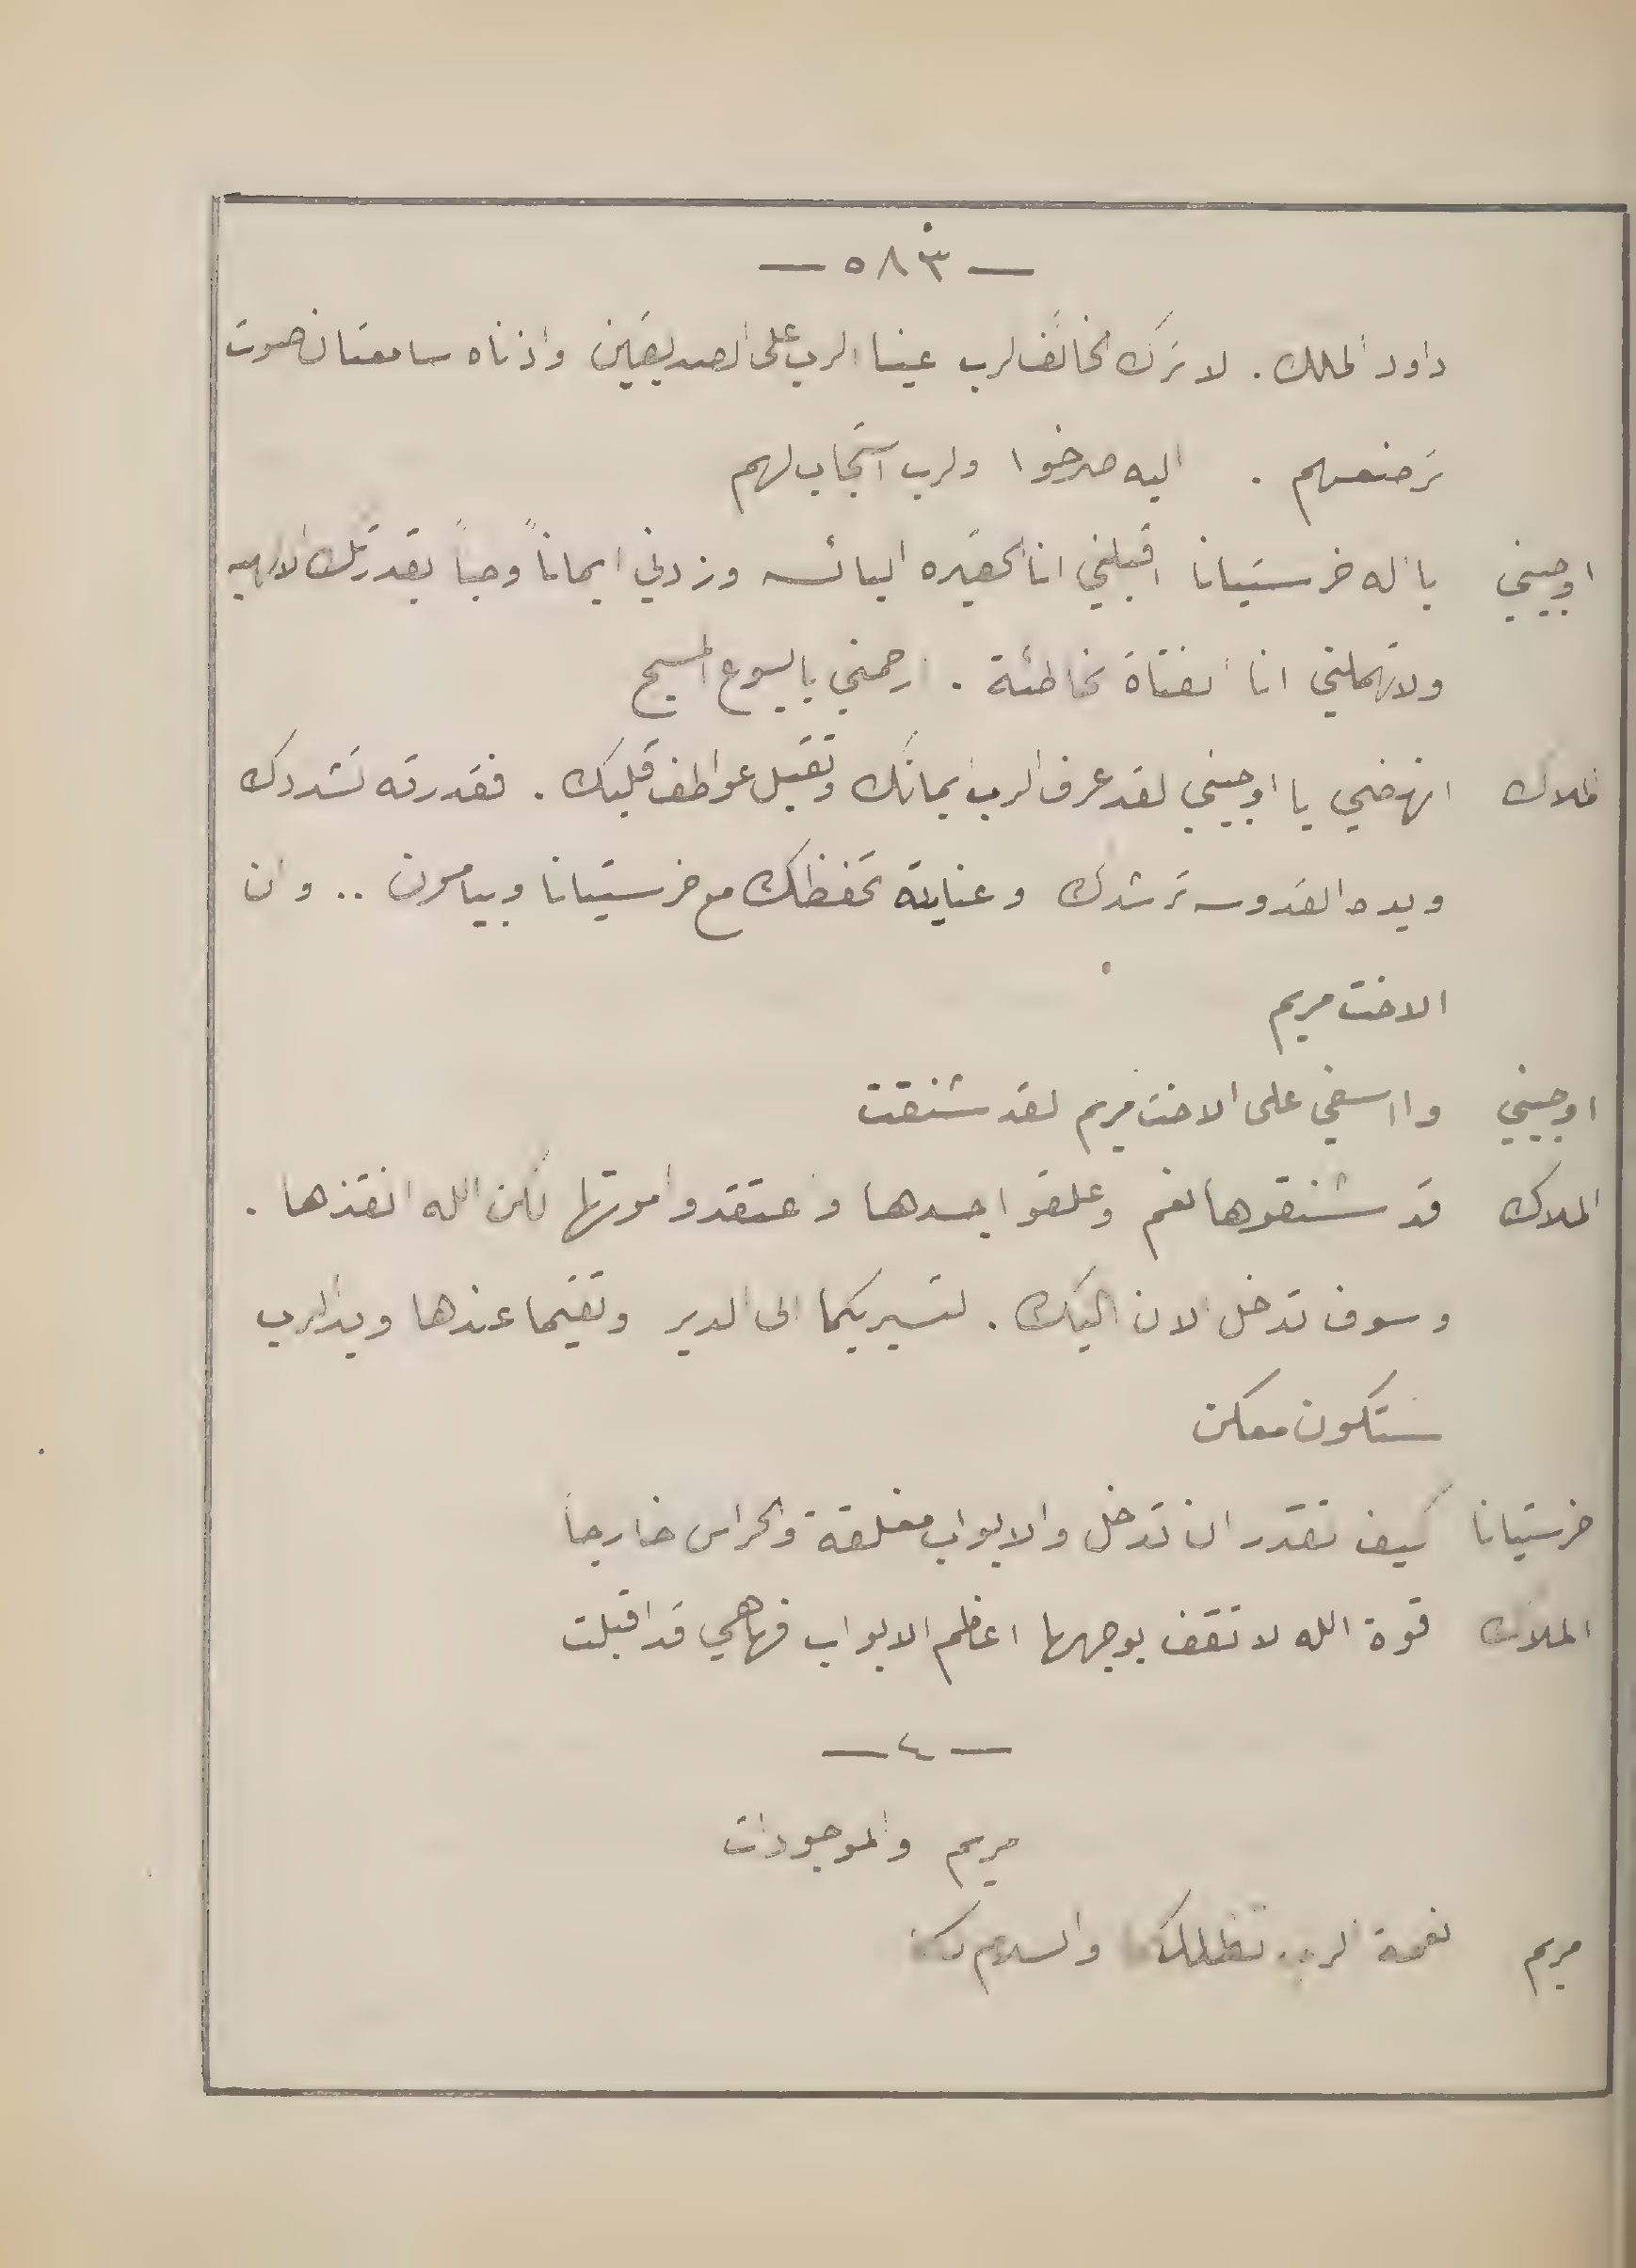 — ٥٨٣ —
داود الملك . لا تترك خائف الرب عينا الرب على الصديقين واذناه سامعتان صوت
تضرعهم . اليه صرخوا والرب استجاب لهم
اوجيني يا اله خرستيانا اقبلني انا الحقيره البائسه وزدني ايماناً وحباً بقدرتك الالهيه
ولا تهملني انا الفتاة الخاطئة . ارحمني يا يسوع المسيح
الملاك انهضي يا اوجيني لقد عرف الرب ايمانك وتقبل عواطف قلبك . فقدرته تشددك
ويده القدوسه ترشدك وعنايته تحفظك مع خرستيانا وبيامون .. وان
الاخت مريم
اوجيني وا اسفي على الاخت مريم لقد شنقت
الملاك قد شنقوها نعم وعلقوا جسدها واعتقدوا موتها لكن الله انقذها .
وسوف تدخل الان اليك . لتسير بكما الى الدير وتقيما عندها ويد الرب
ستكون معكن
خرستيانا كيف تقدر ان تدخل والابواب مغلقة والحراس خارجاً
الملاك قوة الله لا تقف بوجهها اعظم الابواب فها هي قد اقبلت
— ٤ —
مريم والموجودات
مريم نعمة الرب تظللكما والسلام لكما